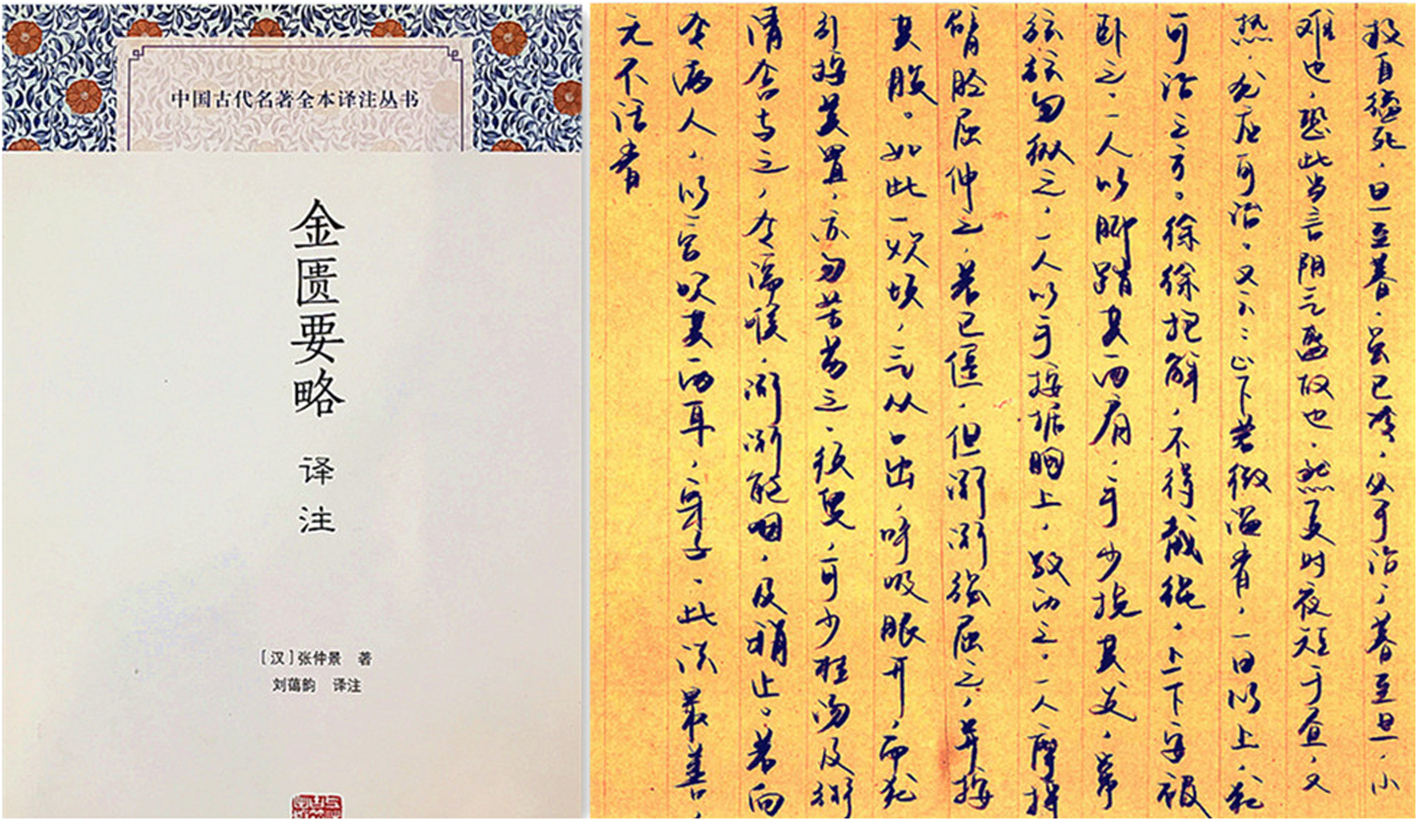 中国古代名著全本译注丛书
金匮要略 译注
[汉]张仲景 著
刘蔼韵 译注
救自缢死,旦至暮,虽已冷,必可治,暮至旦,小
难也,恐此当言阴气盛故也,然夏时夜短于昼,又
热,犹应可治。又云:心下若微温者,一日以上,犹
可治之方。徐徐抱解,不得截绳,上下安被
卧之,一人以脚踏其两肩,手少挽其发,常
弦弦勿纵之,一人以手按据胸上,数动之,一人摩捋
臂胫屈伸之,若已僵,但渐渐强屈之,并按
其腹。如此一炊顷,气从口出,呼吸眼开,而犹
引按莫置,亦勿苦劳之,须臾,可少桂汤及粥
清含与之,令濡喉,渐渐能咽,及稍止。若向
令两人,以管吹其两耳,此法最善,
无不活者